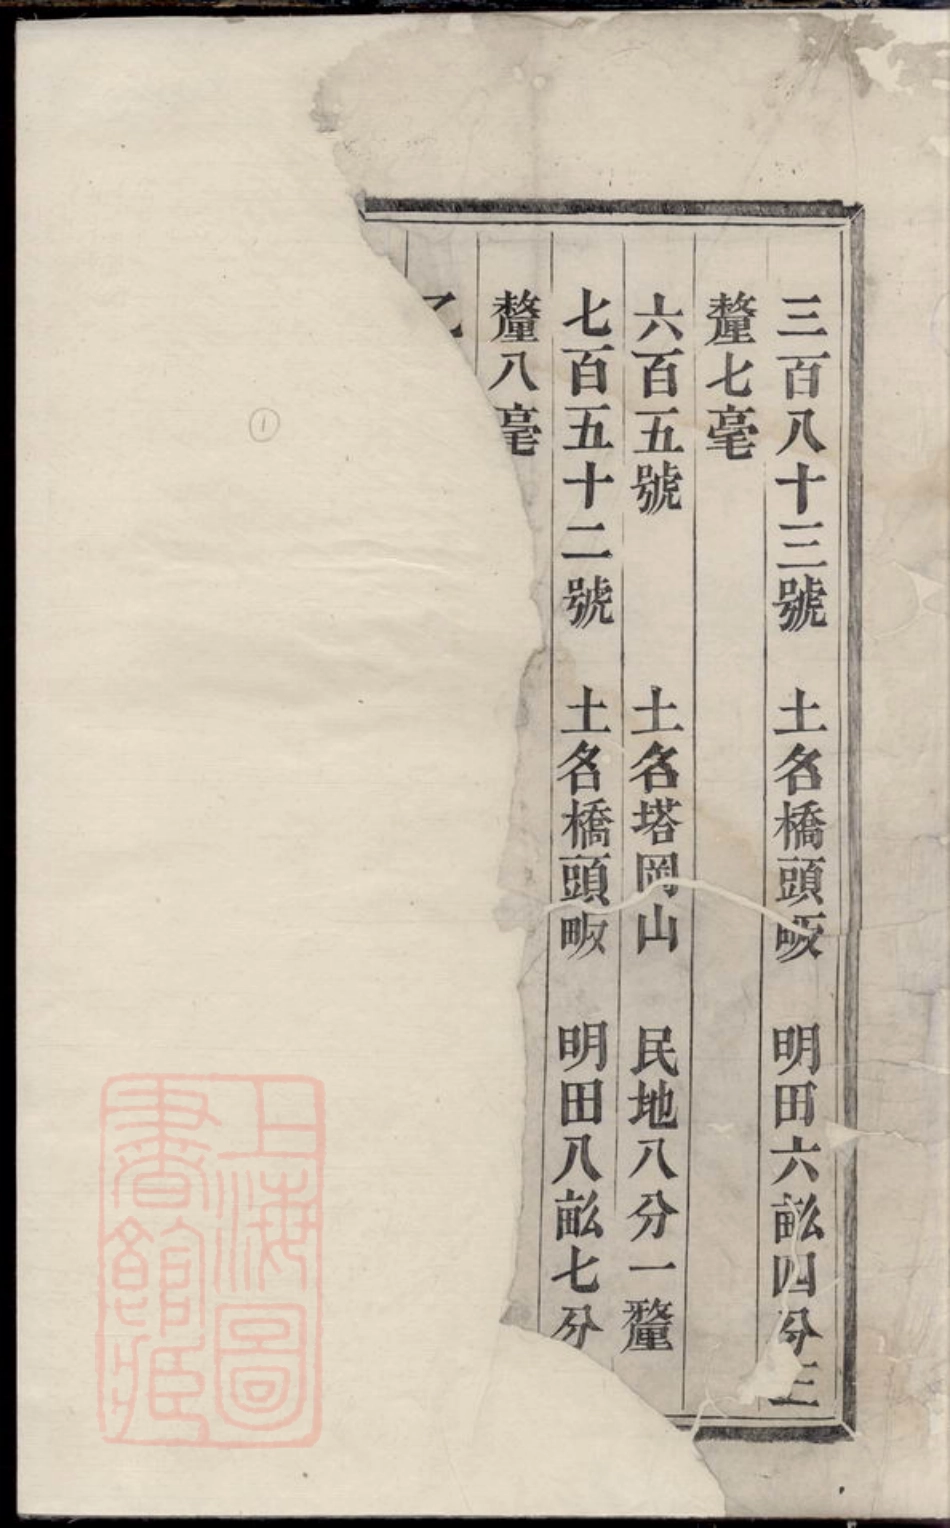 三百八十三號 土名橋頭畈 明田六畝四分三
釐七毫
六百五號 土名塔岡山 民地八分一釐
七百五十二號 土名橋頭畈 明田八畝七分
釐八毫
①
上海圖
書館藏